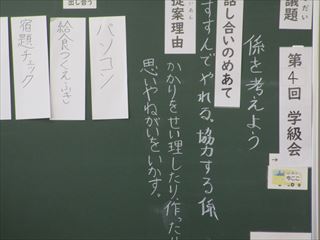 議題
だい
第4回 学級会
→
係を考えよう
話し合いのめあて
すすんでやれる。協力する係
提案理由
かかりをせい理したり、作ったり
思いやねがいをいかす。
出し合う
パソコン
給食つくえふき
宿題チェック